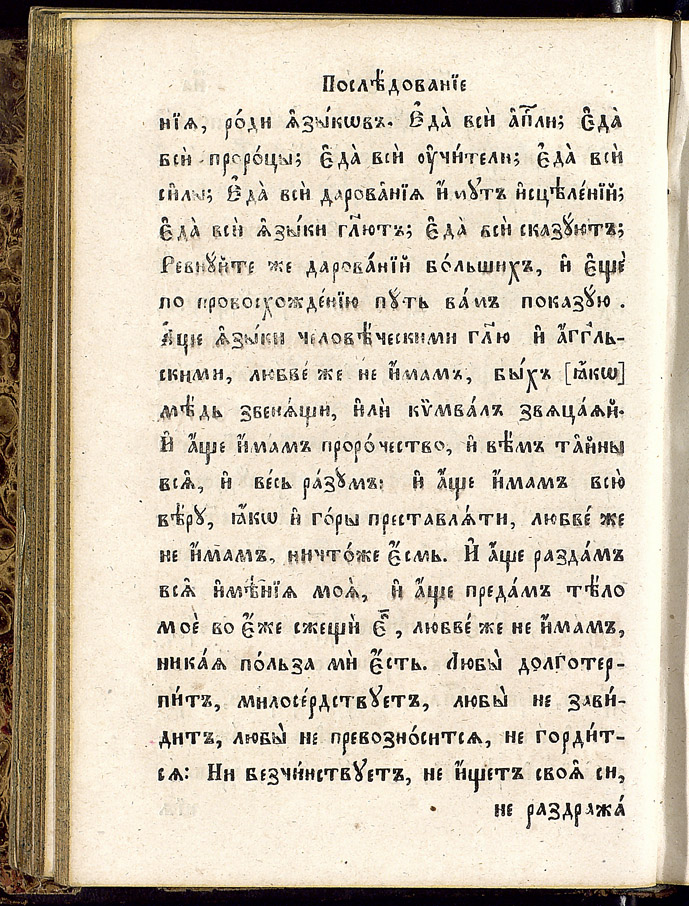 Послѣ́дованїе
нїѧ, ро́ди ѧ҆зы́кѡвъ. Е҆да̀ всѝ а҆пⷭ҇ли; Е҆да̀
всѝ проро́цы; Е҆да̀ всѝ ᲂу҆чи́тели; Е҆да̀ всѝ
си̑лы; Е҆да̀ всѝ дарова̑нїѧ и҆́мꙋтъ и҆сцѣле́нїй;
Е҆да̀ всѝ ѧ҆зы̑ки гл҃ютъ; Е҆да̀ всѝ сказꙋ́ютъ;
Ревнꙋ́йте же дарова́нїй бо́льшихъ, и҆ є҆щѐ
по превосхожде́нїю пꙋ́ть ва́мъ показꙋ́ю.
А҆́ще ѧ҆зы̑ки человѣ́ческими гл҃ю и҆ а҆́гг҃ль-
скими, любве́ же не и҆́мамъ, бы́хъ [ꙗ҆́кѡ]
мѣ́дь звенѧ́щи, и҆лѝ кѷмва́лъ звѧца́ѧй.
И҆ а҆́ще и҆́мамъ проро́чество, и҆ вѣ́мъ та̑йны
всѧ̑, и҆ ве́сь ра́зꙋмъ: и҆ а҆́ще и҆́мамъ всю̀
вѣ́рꙋ, ꙗ҆́кѡ и҆ го́ры преставлѧ́ти, любве́ же
не и҆́мамъ, ничто́же є҆́смь. И҆ а҆́ще разда́мъ
всѧ̑ и҆мѣ̑нїѧ моѧ̑, и҆ а҆́ще преда́мъ тѣ́ло
моѐ во є҆́же сжещѝ є҆̀, любве́ же не и҆́мамъ,
никаѧ́ по́льза мѝ є҆́сть. Любы̀ долготер-
пи́тъ, милосе́рдствꙋетъ, любы̀ не зави́-
дитъ, любы̀ не превозно́ситсѧ, не горди́т-
сѧ: Ни безчи́нствꙋетъ, не и҆́щетъ своѧ̑ си,
не раздража́